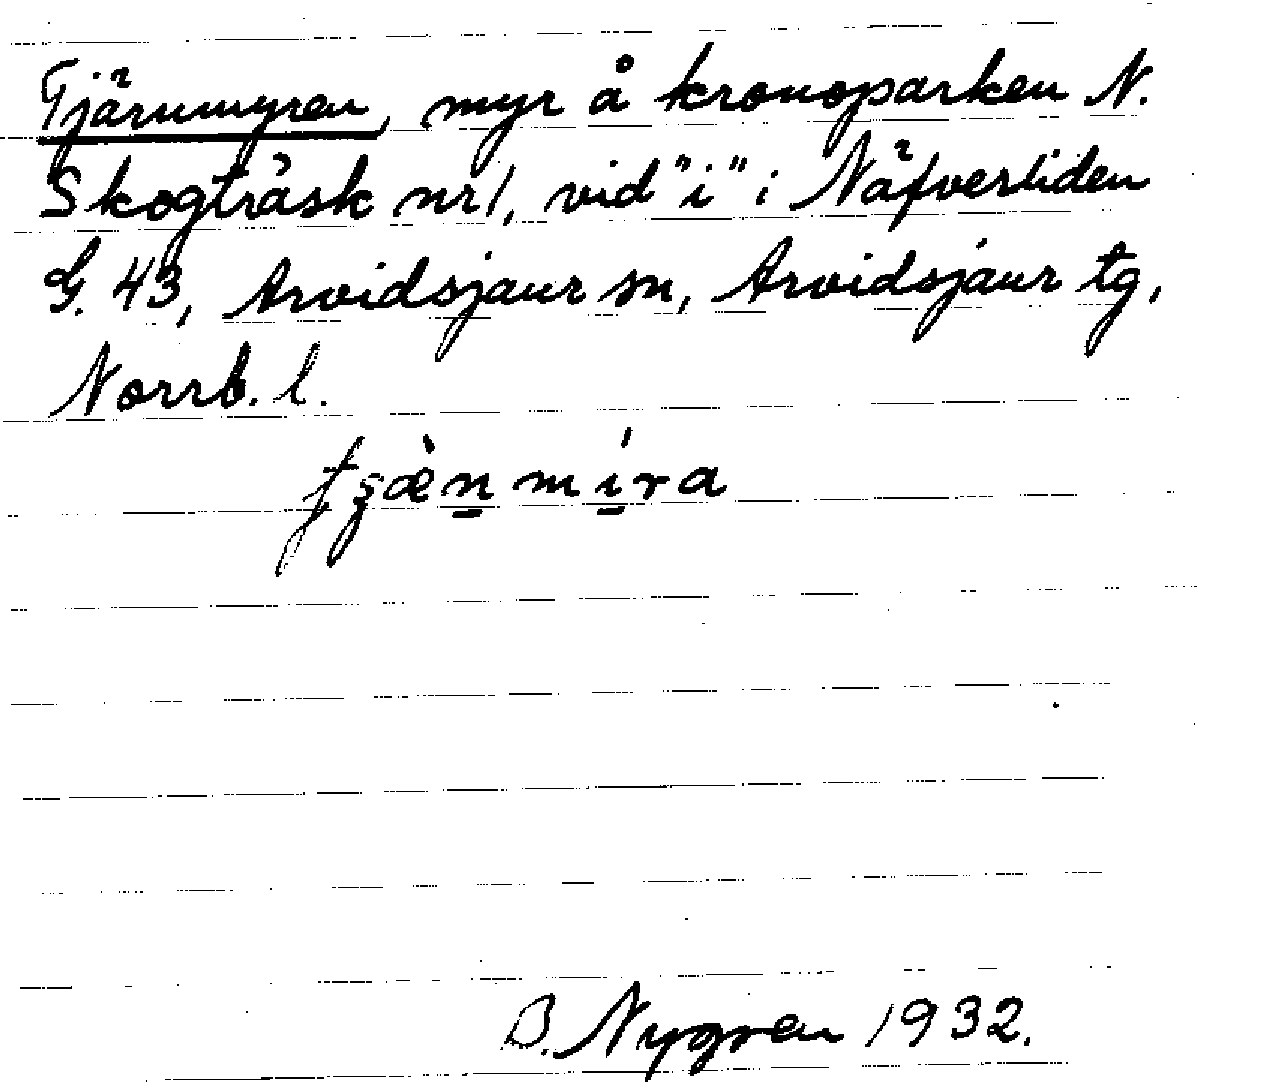 Tjärnmyren, myr å kronoparken N.
Skogträsk nr 1, vid "i" i Näfverliden
G. 43, Arvidsjaur sn, Arvidsjaur tg,
Norrb. l.
B. Nygren 1932.